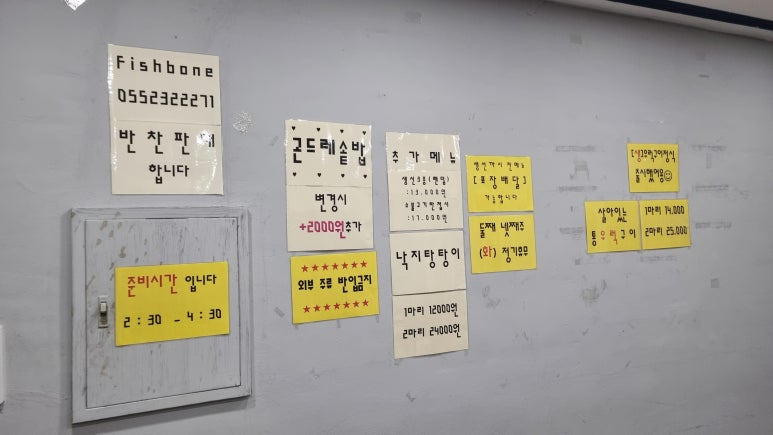 Fishbone
0552322271
반찬판매
합니다
준비시간 입니다
2:30 - 4:30
곤드레솥밥
변경시
+2000원추가
외부 주류 반입금지
추가메뉴
생선모듬(팬밀)
:19,000원
소불고기한접시
:17,000원
낙지탕탕이
1마리 12000원
2마리 24000원
생선가시전메뉴
[포장배달]
가능합니다
둘째 넷째주
(화) 정기휴무
[생]우럭구이정식
출시했어용
살아있는
통우럭구이
1마리 14,000
2마리 25,000